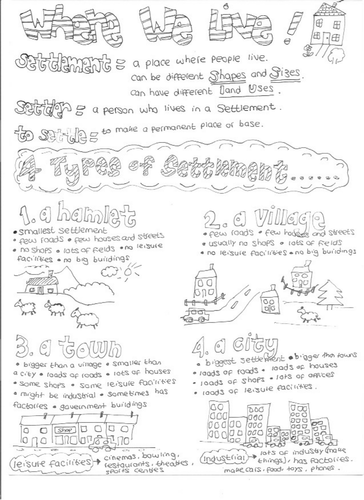 Where We Live!
Settlement = a place where people live.
can be different Shapes and Sizes.
can have different Land Uses.
Settler = a person who lives in a Settlement.
to settle = to make a permanent place or base.
4 Types of Settlement......
1. a hamlet
• smallest settlement
• few roads • few houses and streets
• no shops • lots of fields • no leisure
facilities • no big buildings
2. a village
• few roads • few houses and streets
• usually no shops • lots of fields
• no leisure facilities • no big buildings
3. a town
• bigger than a village • smaller than
a city • loads of roads • lots of houses
• some shops • some leisure facilities
• might be industrial • sometimes has
factories • government buildings
SHOP
leisure facilities → cinemas, bowling,
restaurants, theatres
sports centres
4. a city
• biggest settlement • bigger than towns
• loads of roads • loads of houses
• loads of shops • lots of offices
• loads of leisure facilities.
industrial → lots of industry (make
things), has factories.
make cars, food, toys, phones.